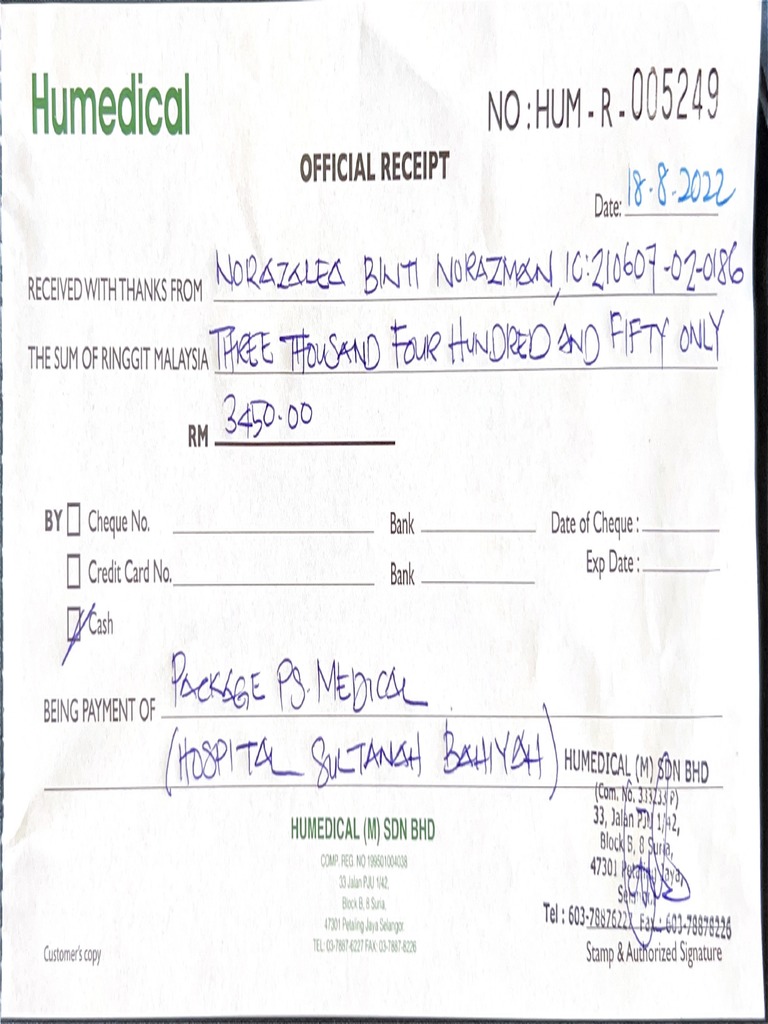 Humedical
NO : HUM - R - 005249
OFFICIAL RECEIPT
Date: 18.8.2022
RECEIVED WITH THANKS FROM NORAZALEA BINTI NORAZMAN, IC: 210607-02-0186
THE SUM OF RINGGIT MALAYSIA THREE THOUSAND FOUR HUNDRED AND FIFTY ONLY
RM 3450.00
BY Cheque No. Bank Date of Cheque :
Credit Card No. Bank Exp Date :
Cash
BEING PAYMENT OF PACKAGE PS. MEDICAL
(HOSPITAL SULTANAH BAHIYAH)
HUMEDICAL (M) SDN BHD
(Com. No. P)
33, Jalan PJU 1/42,
Block B, 8 Suria,
47301 Petaling Jaya,
Tel : 603-7887622 Fax : 603-78878226
Stamp & Authorized Signature
HUMEDICAL (M) SDN BHD
COMP. REG. NO 199501004038
33 Jalan PJU 1/42,
Block B, 8 Suria,
47301 Petaling Jaya Selangor.
TEL: 03-7887-6227 FAX: 03-7887-8226
Customer's copy